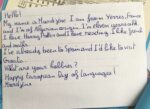 Hello!
My name is Mardyine. I am from Yerres, France
and I'm of Algerian origin. I'm eleven years old.
I love Harry Potter and I love reading. I like food
and
I've already been to Spain and I'd like to visit
Croatia.
What are your hobbies?
Happy European Day of languages!